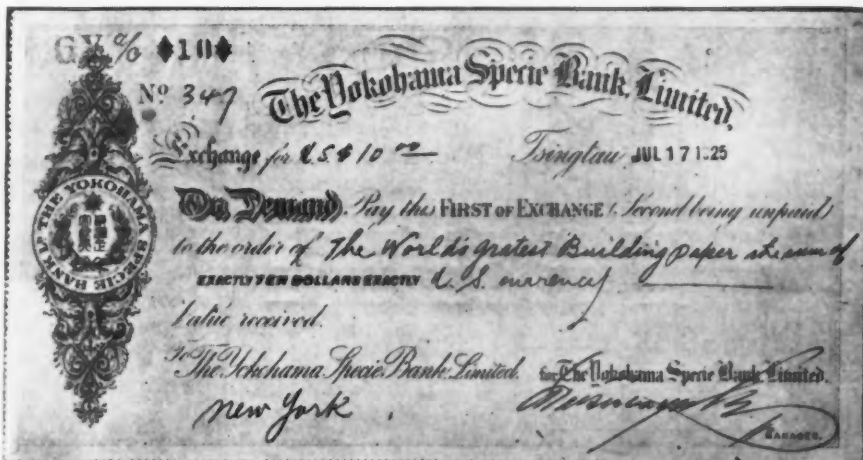 ◆10◆
No 347
The Yokohama Specie Bank, Limited,
Exchange for U.S.$10.00 Tsingtau JUL 17 1925
On Demand, Pay this FIRST of EXCHANGE (Second being unpaid)
to the order of The World's gratest Building paper the sum of
EXACTLY TEN DOLLARS EXACTLY U.S. currency
Value received.
To The Yokohama Specie Bank Limited. for The Yokohama Specie Bank, Limited.
New York.
MANAGER.
THE YOKOHAMA SPECIE BANK LD